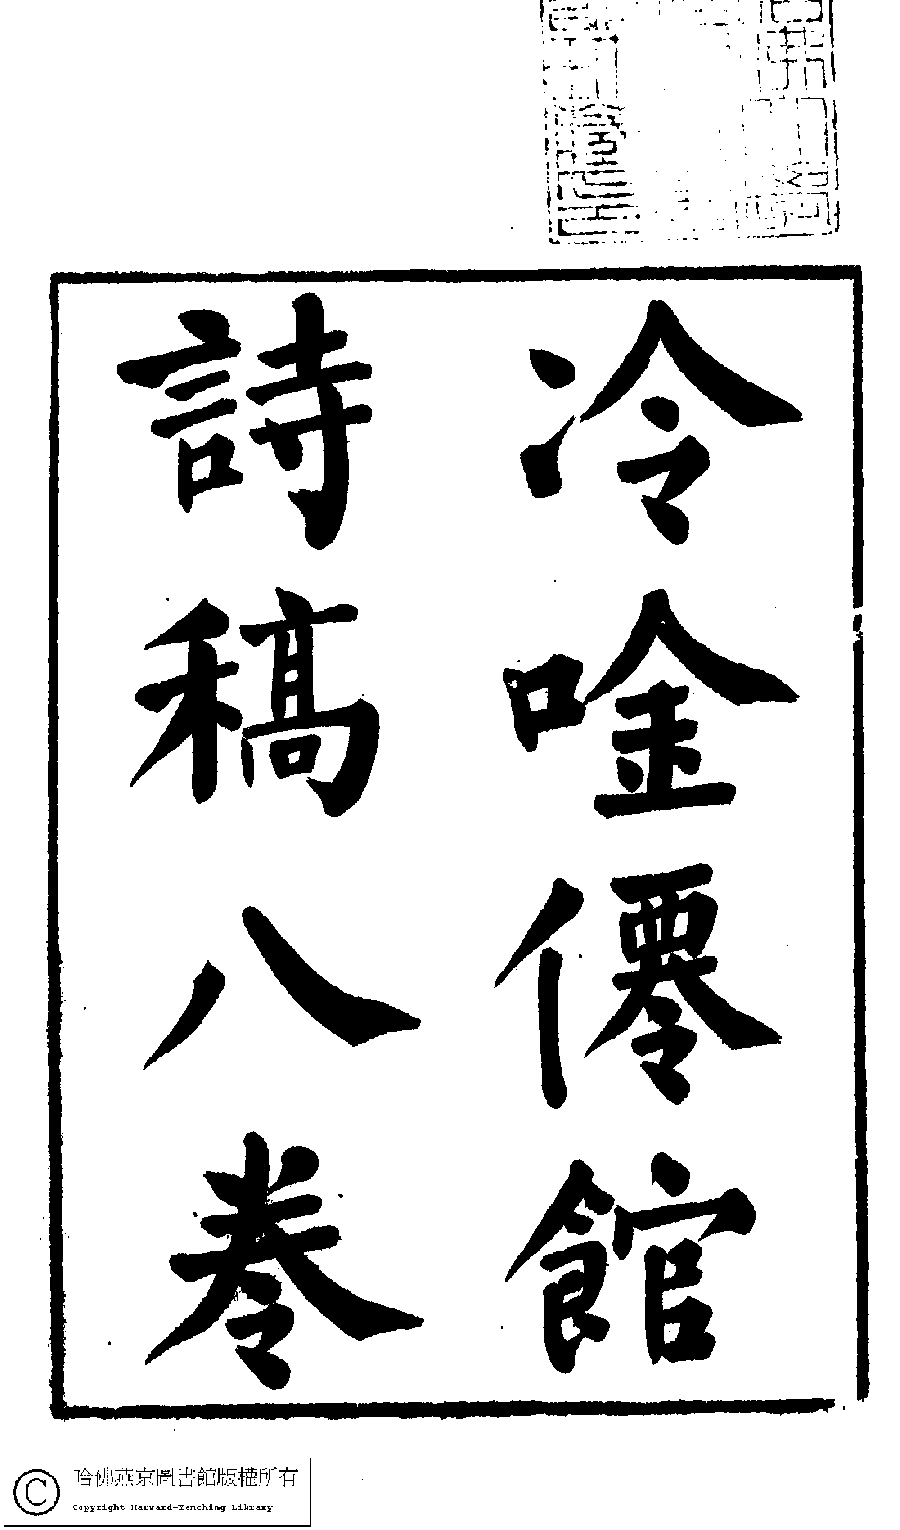 冷唫僊館
詩稿八卷
哈佛燕京圖書館版權所有
Copyright Harvard-Yenching Library